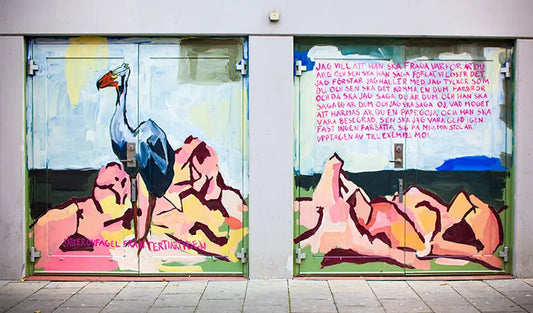 JAG VILL ATT HAN SKA FRÅGA VARFÖR ÄR DU
ARG OCH SEN SKA HAN SÄGA FÖRLÅT VI LÖSER DET
JAG FÖRSTÅR JAG HÅLLER MED, JAG TYCKER SOM
DU, OCH SEN SKA DET KOMMA EN DUM FARBROR
OCH DÅ SKA JAG SÄGA DU ÄR DUM OCH HAN SKA
SÄGA DU ÄR DUM OCH JAG SKA SÄGA OJ, VAD MODIGT
ATT HÄRMAS ÄR DU EN PAPEGOJA, OCH HAN SKA
VARA BESEGRAD. SEN SKA JAG VARA GLAD IGEN
FAST INGEN FÅR SÄTTA SIG PÅ MIG, MIN STOL ÄR
UPPTAGEN AV TILL EXEMPEL MOI.
FRÅN TERTIÄRTIDEN